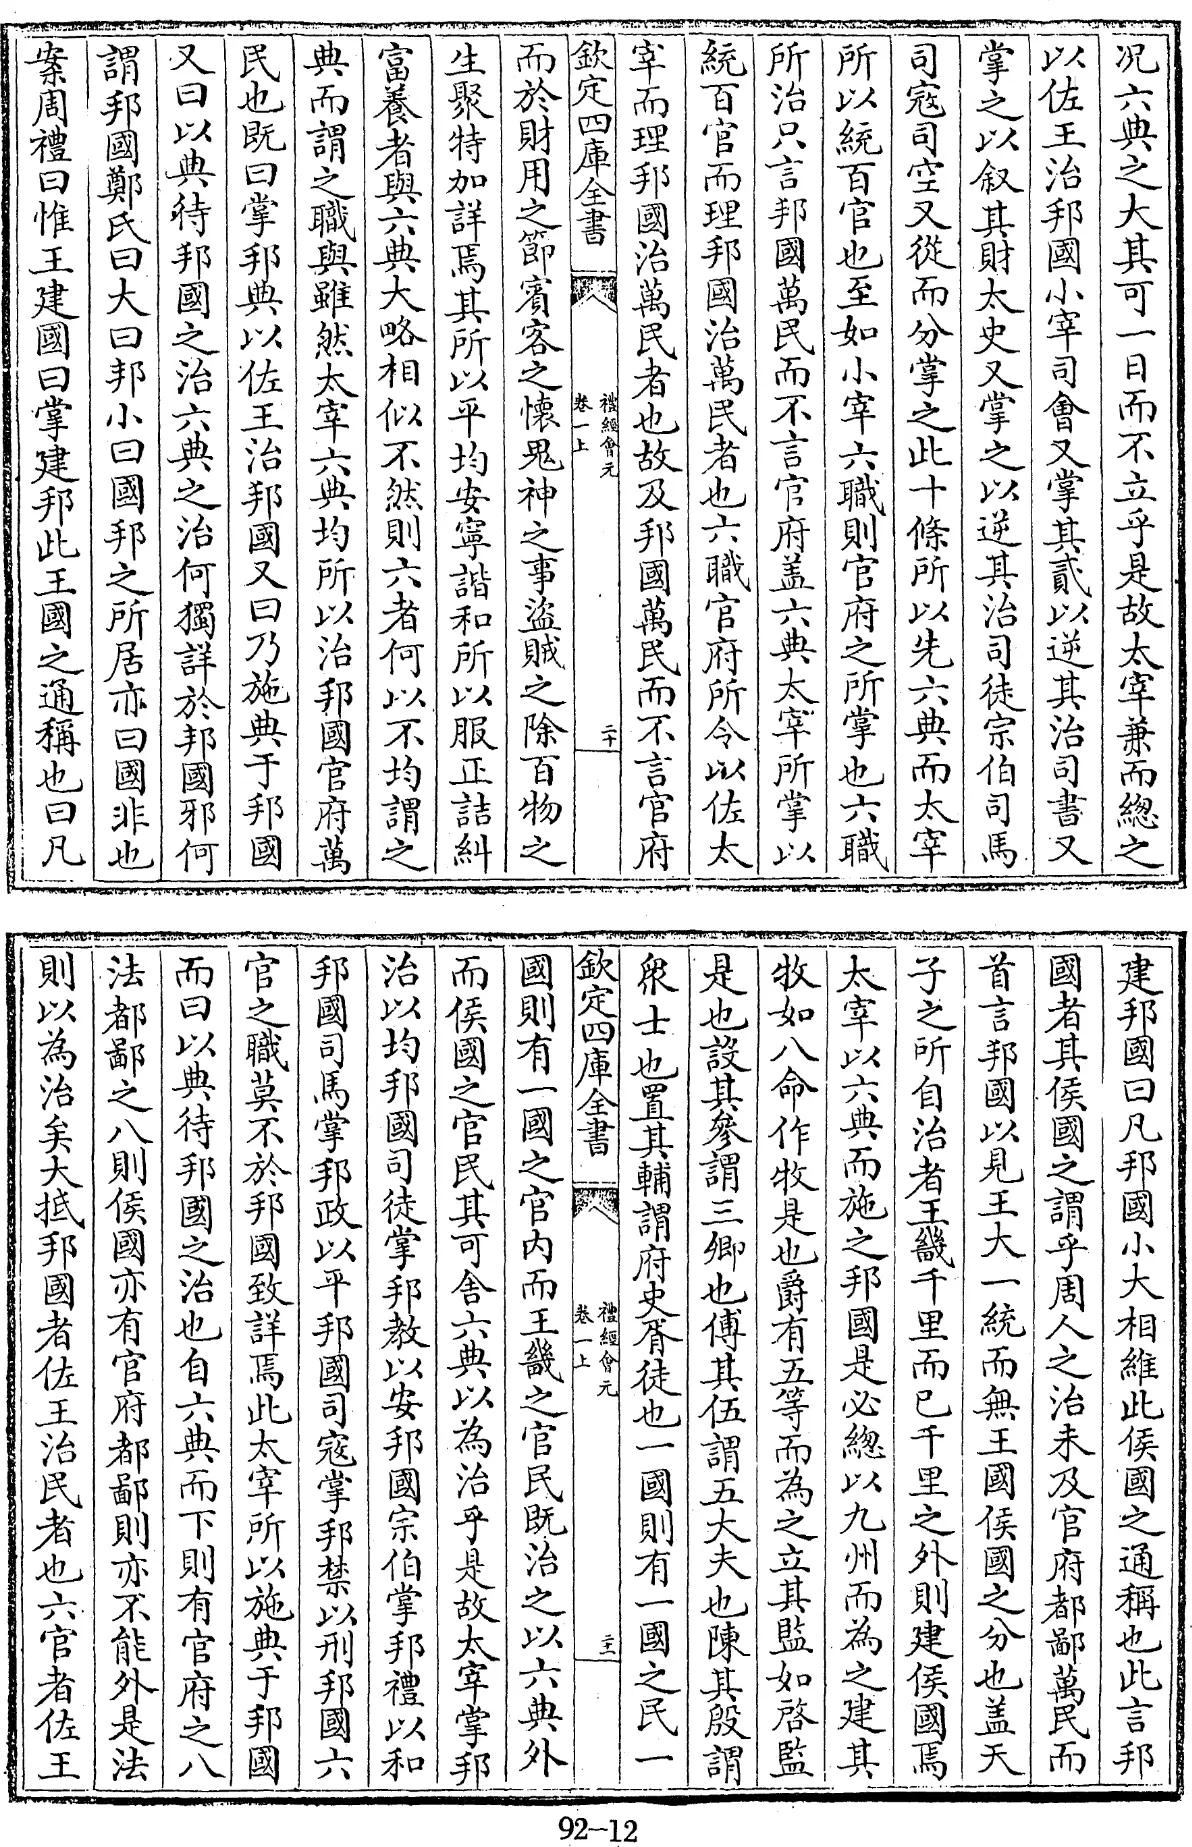 况六典之大其可一日而不立乎是故太宰兼而總之
以佐王治邦國小宰司會又掌其貳以逆其治司書又
掌之以叙其財太史又掌之以逆其治司徒宗伯司馬
司寇司空又從而分掌之此十條所以先六典而太宰
所以統百官也至如小宰六職則官府之所掌也六職
所治只言邦國萬民而不言官府盖六典太宰所掌以
統百官而理邦國治萬民者也六職官府所令以佐太
宰而理邦國治萬民者也故及邦國萬民而不言官府
欽定四庫全書
禮經會元
卷一上
二十
而於財用之節賓客之懐鬼神之事盜賊之除百物之
生聚特加詳焉其所以平均安寧諧和所以服正詰糾
富養者與六典大略相似不然則六者何以不均謂之
典而謂之職與雖然太宰六典均所以治邦國官府萬
民也既曰掌邦典以佐王治邦國又曰乃施典于邦國
又曰以典待邦國之治六典之治何獨詳於邦國邪何
謂邦國鄭氏曰大曰邦小曰國邦之所居亦曰國非也
案周禮曰惟王建國曰掌建邦此王國之通稱也曰凡
建邦國曰凡邦國小大相維此侯國之通稱也此言邦
國者其侯國之謂乎周人之治未及官府都鄙萬民而
首言邦國以見王大一統而無王國侯國之分也盖天
子之所自治者王畿千里而已千里之外則建侯國焉
太宰以六典而施之邦國是必總以九州而為之建其
牧如八命作牧是也爵有五等而為之立其監如啓監
是也設其參謂三卿也傅其伍謂五大夫也陳其殷謂
衆士也置其輔謂府史胥徒也一國則有一國之民一
欽定四庫全書
禮經會元
卷一上
二十一
國則有一國之官内而王畿之官民既治之以六典外
而侯國之官民其可舍六典以為治乎是故太宰掌邦
治以均邦國司徒掌邦教以安邦國宗伯掌邦禮以和
邦國司馬掌邦政以平邦國司寇掌邦禁以刑邦國六
官之職莫不於邦國致詳焉此太宰所以施典于邦國
而曰以典待邦國之治也自六典而下則有官府之八
法都鄙之八則侯國亦有官府都鄙則亦不能外是法
則以為治矣大抵邦國者佐王治民者也六官者佐王
92-12